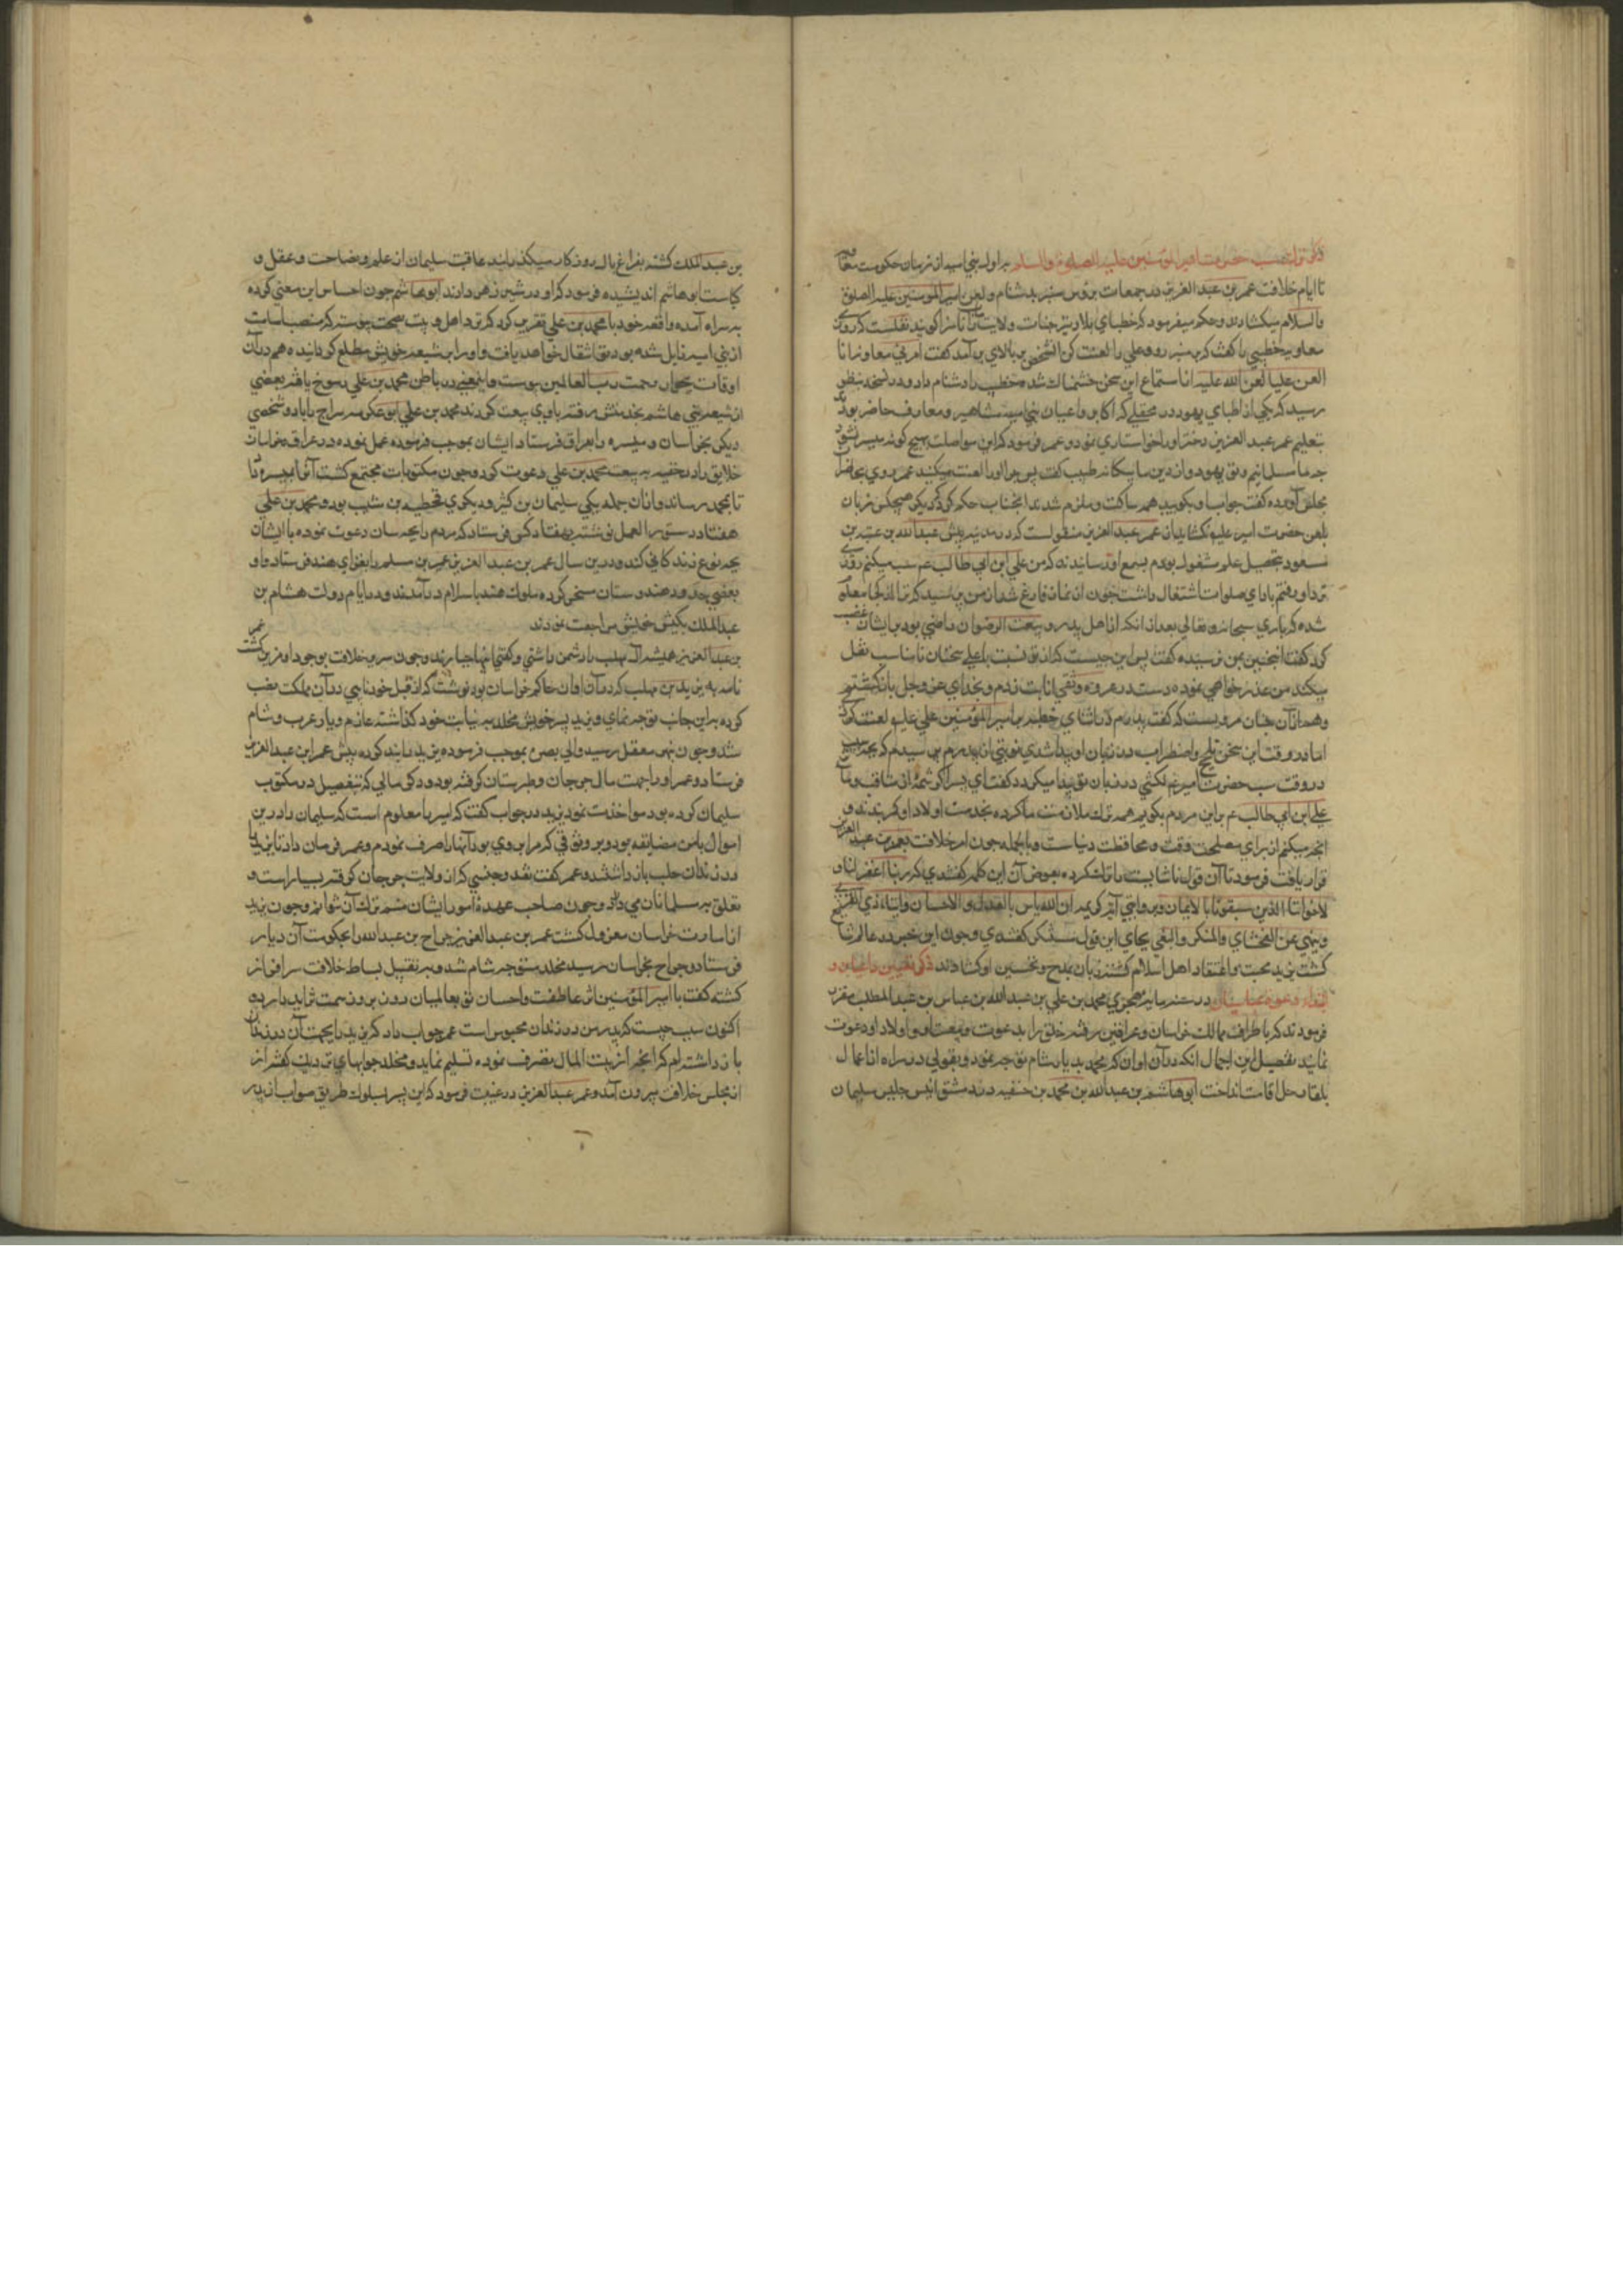 ذکر ترک سب حضرت امیرالمؤمنین علیه الصلوة والسلام برآوله بنی امیه از زمان حکومت معاویه
تا ایام خلافت عمر بن عبدالعزیز در جمعات بروس منبر بدشنام ولعن امیرالمومنین علیه الصلوة
والسلام میکشادند وحکم میفرمود که خطبای بلاد بر جنات ولایت ناسزا کویند نقلست که روزی
معاویه خطیبی را کفت که بر منبر رو وعلی را لعنت کن الشخص بر بالای بر آمد کفت امرنی معاویه انا
العن علیا لعن الله علیه از استماع این سخن خشمناک شده خطیب را دشنام داد ودر نسخه بنظر
رسید که یکی از اطبای یهود در محفلی که اکابر واعیان بنی امیه ومشاهیر ومعارف حاضر بودند
بتعلیم عمر عبدالعزیز دختر اورا خواستاری نمود وعمر فرمود که این مواصلت بهیچ کونه میسر نشود
چه ما مسلمانیم وتو یهود واز دین ما بیکانه طبیب کفت پس چرا اورا لعنت میکنید عمر روی بحاضران
مجلس آورده کفت جواب او بکویید همه ساکت وملزم شدند آنجناب حکم کرد که دیکر هیچکس زبان
بلعن حضرت امیر علیه نکشاید از عمر عبدالعزیز منقولست که در مدینه پیش عبدالله بن عتبه بن
مسعود بتحصیل علم مشغول بودم بسمع او رسانیدند که من علی ابن ابی طالب عم سب میکنم روزی
نزد او رفتم باداي صلوات اشتغال داشت چون از نماز فارغ شد از من پرسید که ترا از کجا معلوم
شده که باری سبحانه وتعالی بعد از آنکه از اهل بدر وبیعت الرضوان راضی بود بر ایشان غضب
کرد کفت اینچنین بمن نرسیده کفت پس این چیست که از تو نسبت باعلی سخنان نامناسب نقل
میکنند من عذر خواهی نموده دست در عروه وثقی انابت زدم وبخدای عزوجل بازکشتم
وهمدران جنان مرویست که کفت پدرم در اثنای خطبه بر امیرالمؤمنین علی علیه لعنت کردی
اما در وقت این سخن تلجلج واضطراب در زبان او پیدا شدی نوبتی از پدرم پرسیدم که بچه سبب
در وقت سب حضرت امیر عم لکنتی در زبان تو پیدا میکردد کفت ای پسر اکر شمه از مناقب ومآثر
علی ابن ابی طالب عم بر این مردم بکویم همه ترک ملازمت ما کرده بخدمت اولاد او کمر بندند و
آنچه میکنم از برای مصلحت وقت ومحافظت دنیاست وبالجمله چون امر خلافت بعمر بن عبدالعزیز
قرار یافت فرمود تا آن قول ناشایسته را ترک کرده بعوض آن این کلمه کفتندی که ربنا اغفر لنا و
لاخواننا الذین سبقونا بالایمان وبروایتی آیه کریمه ان الله یأمر بالعدل والاحسان وایتاء ذی القربی
وینهی عن الفحشاء والمنکر والبغی بجای این قول مستنکر کفتندی وچون این خبر در عالم شایع
کشت مزید محبت واعتقاد اهل اسلام کشته زبان بمدح وتحسین او کشادند ذکر تعیین داعیان و
ابتداء دعوه عباسیان در سنه مایه هجری محمد بن علی بن عبدالله بن عباس بن عبدالمطلب مقرر
فرمودند که باطراف ممالک خراسان وعراقین رفته خلق را بدعوت وبیعت او واولاد او دعوت
نمایند تفصیل این اجمال آنکه در آن اوان که محمد بدیار شام توجه نمود وبقولی در راه از اعمال
بلقا رحل اقامت انداخت ابوهاشم بن عبدالله بن محمد بن حنفیه در دمشق انیس جلیس سلیمان
بن عبدالملک کشته بفراغ بال روزکار میکذرانید عاقبت سلیمان از علم وفصاحت وعقل و
کیاست ابوهاشم اندیشیده فرمود که اورا در شیر زهر دادند ابوهاشم چون احساس این معنی کرده
به سراه آمده واقعه خود با محمد بن علی تقریر کرد که نزد اهل بیت بصحت پیوسته که منصب امامت
از بنی امیه زایل شده بود بتو انتقال خواهد یافت واورا بر شیعه خویش مطلع کردانیده هم در آن
اوقات بجوار رحمت رب العالمین پیوست واین معنی در باطن محمد بن علی رسوخ یافته بعضی
از شیعه بنی هاشم بخدمتش رفته با وی بیعت کردند محمد بن علی ابو عکرمه سراج را با دو شخصی
دیکر بخراسان ومیسره را بعراق فرستاد ایشان بموجب فرموده عمل نموده در عراق وخراسان
خلایق را در خفیه به بیعت محمد بن علی دعوت کرد وچون مکتوبات مجتمع کشت آنرا بمیسره داد
تا بمحمد رساند وازان جمله یکی سلیمان بن کثیر ودیکری قحطبه بن شبیب بود ومحمد بن علی
هفتاد دستور العمل نوشته بهفتاد کس فرستاد که مردم را بچه سان دعوت نموده با ایشان
بچه نوع زندکانی کند ودرین سال عمر بن عبدالعزیز عمر بن مسلم را بغزای هند فرستاد واو
بعضی حدود هندوستان مسخر کرده ملوک هند باسلام درآمدند ودر ایام دولت هشام بن
عبدالملک بکیش خویش مراجعت نمودند
بن عبدالعزیز همیشه آل مهلب را دشمن داشتی وکفتی اینها جبارند وچون سریر خلافت بوجود او مزین کشت
نامه به یزید بن مهلب که در آن اوان حاکم خراسان بود نوشت که از قبل خود نایبی در آن مملکت نصب
کرده براین جانب توجه نمای ویزید پسر خویش مخلد به نیابت خود کذاشته عازم دیار عرب وشام
شد وچون بنهر معقل رسید والی بصره بموجب فرموده یزید را بند کرده پیش عمر ابن عبدالعزیز
فرستاد وعمر اورا جهت مال جرجان وطبرستان کرفته بود وذکر مالی که بتفصیل در مکتوب
سلیمان کرده بود مواخذت نمود یزید در جواب کفت که امیر را معلوم است که سلیمان را درین
اموال با من مضایقه نبود وبر وثوقی که مرا بر وی بود آنها را صرف نمودم وعمر فرمان داد تا یزید را
در زندان حلب باز داشتند وعمر کفت نقد وجنسی که از ولایت جرجان کرفته بسیار است و
تعلق به مسلمانان می دارد وچون صاحب عهده امور ایشان منم ترک آن نتوانم وچون یزید
از امارت خراسان معزول کشت عمر بن عبدالعزیز جراح بن عبدالله را بحکومت آن دیار
فرستاد وجراح بخراسان رسید مخلد متوجه شام شد وبه تقبیل بساط خلافت سرافراز
کشته کفت یا امیرالمؤمنین اثر عاطفت واحسان تو بعالمیان روز بروز سمت تزاید دارد
اکنون سبب چیست که پدر من در زندان محبوس است عمر جواب داد که یزید را بجهت آن در زندان
باز داشته‌ام که آنچه از بیت المال تصرف نموده تسلیم نماید ومخلد جوابهای نزدیک کفته از
از مجلس خلافت بیرون آمد وعمر عبدالعزیز در غیبت فرمود که این پسر بسلوک طریق صواب از پدر